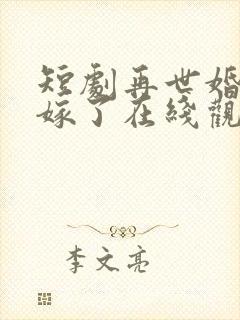 短劇再世婚
嫁了在綫觀
李文亮